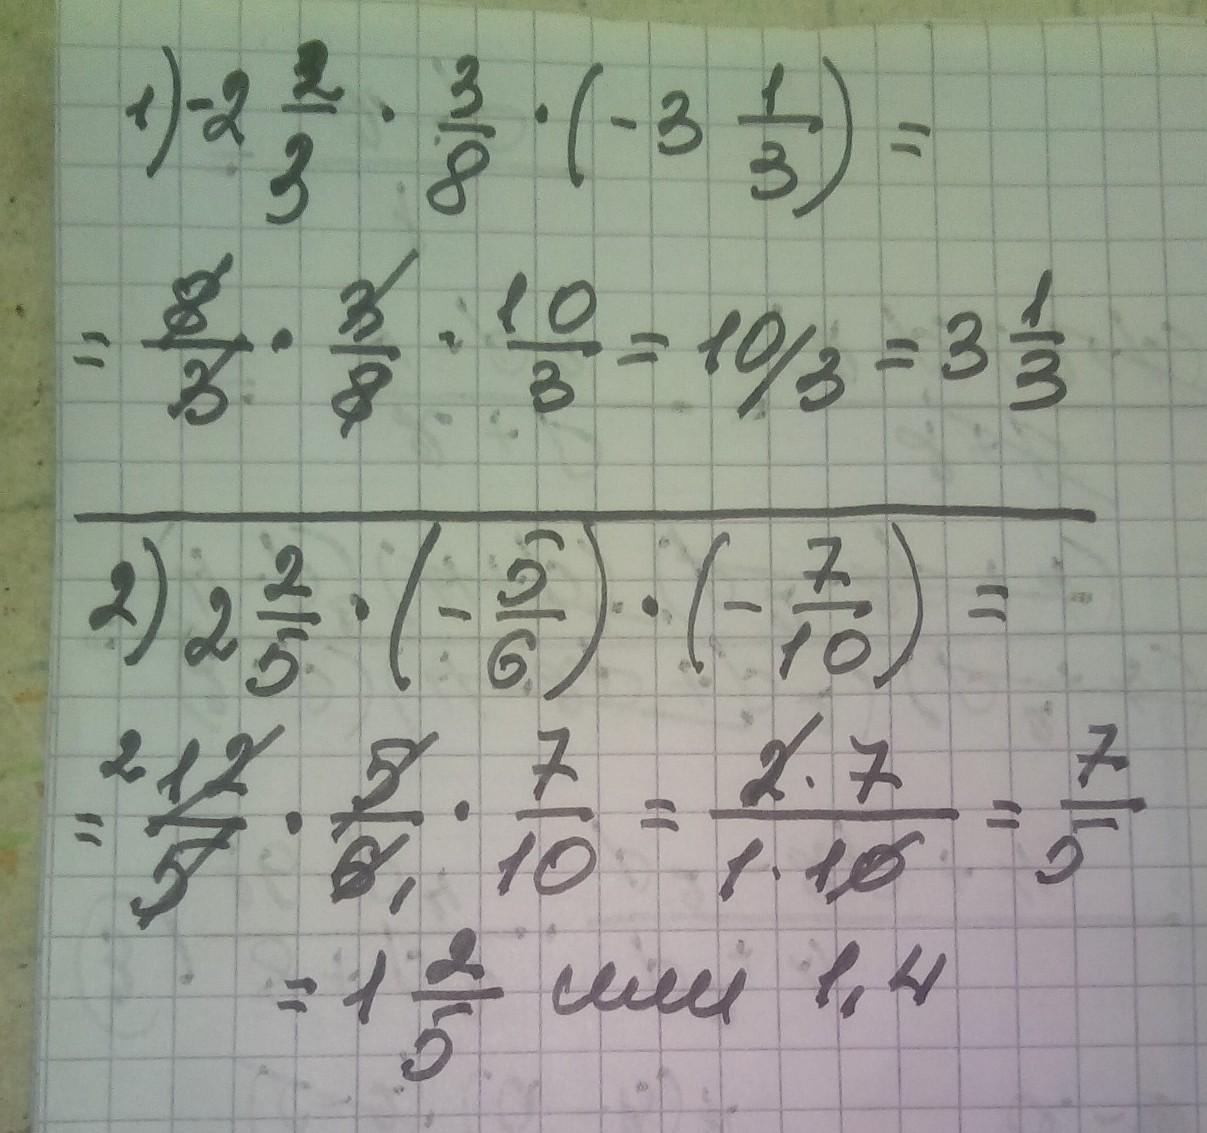 1) -2 2/3 · 3/8 · (-3 1/3) =
= 8/3 · 3/8 · 10/3 = 10/3 = 3 1/3
2) 2 2/5 · (-5/6) · (-7/10) =
= 2 12/5 · 5/6 1 · 7/10 = 2·7/1·10 = 7/5
= 1 2/5 или 1,4